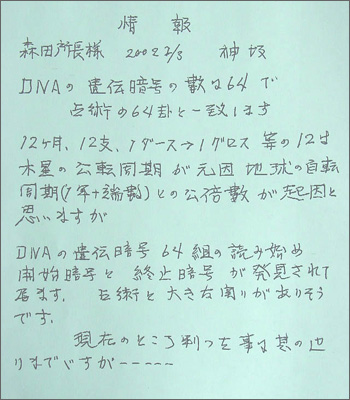 情報
森田所長様 2002 2/5 神坂
DNAの遺伝暗号の数は64で
占術の64卦と一致します
12ヶ月、12支、1ダース→1グロス 等の12は
木星の公転同期が元因 地球の自転
同期(1年+端数)との公倍数が起因と
思いますが
DNAの遺伝暗号 64組の読み始め
開始暗号と 終止暗号 が発見されて
居ます. 占術と大きな関りがありそう
です.
現在のところ判った事は其の辺
りまでですが-----